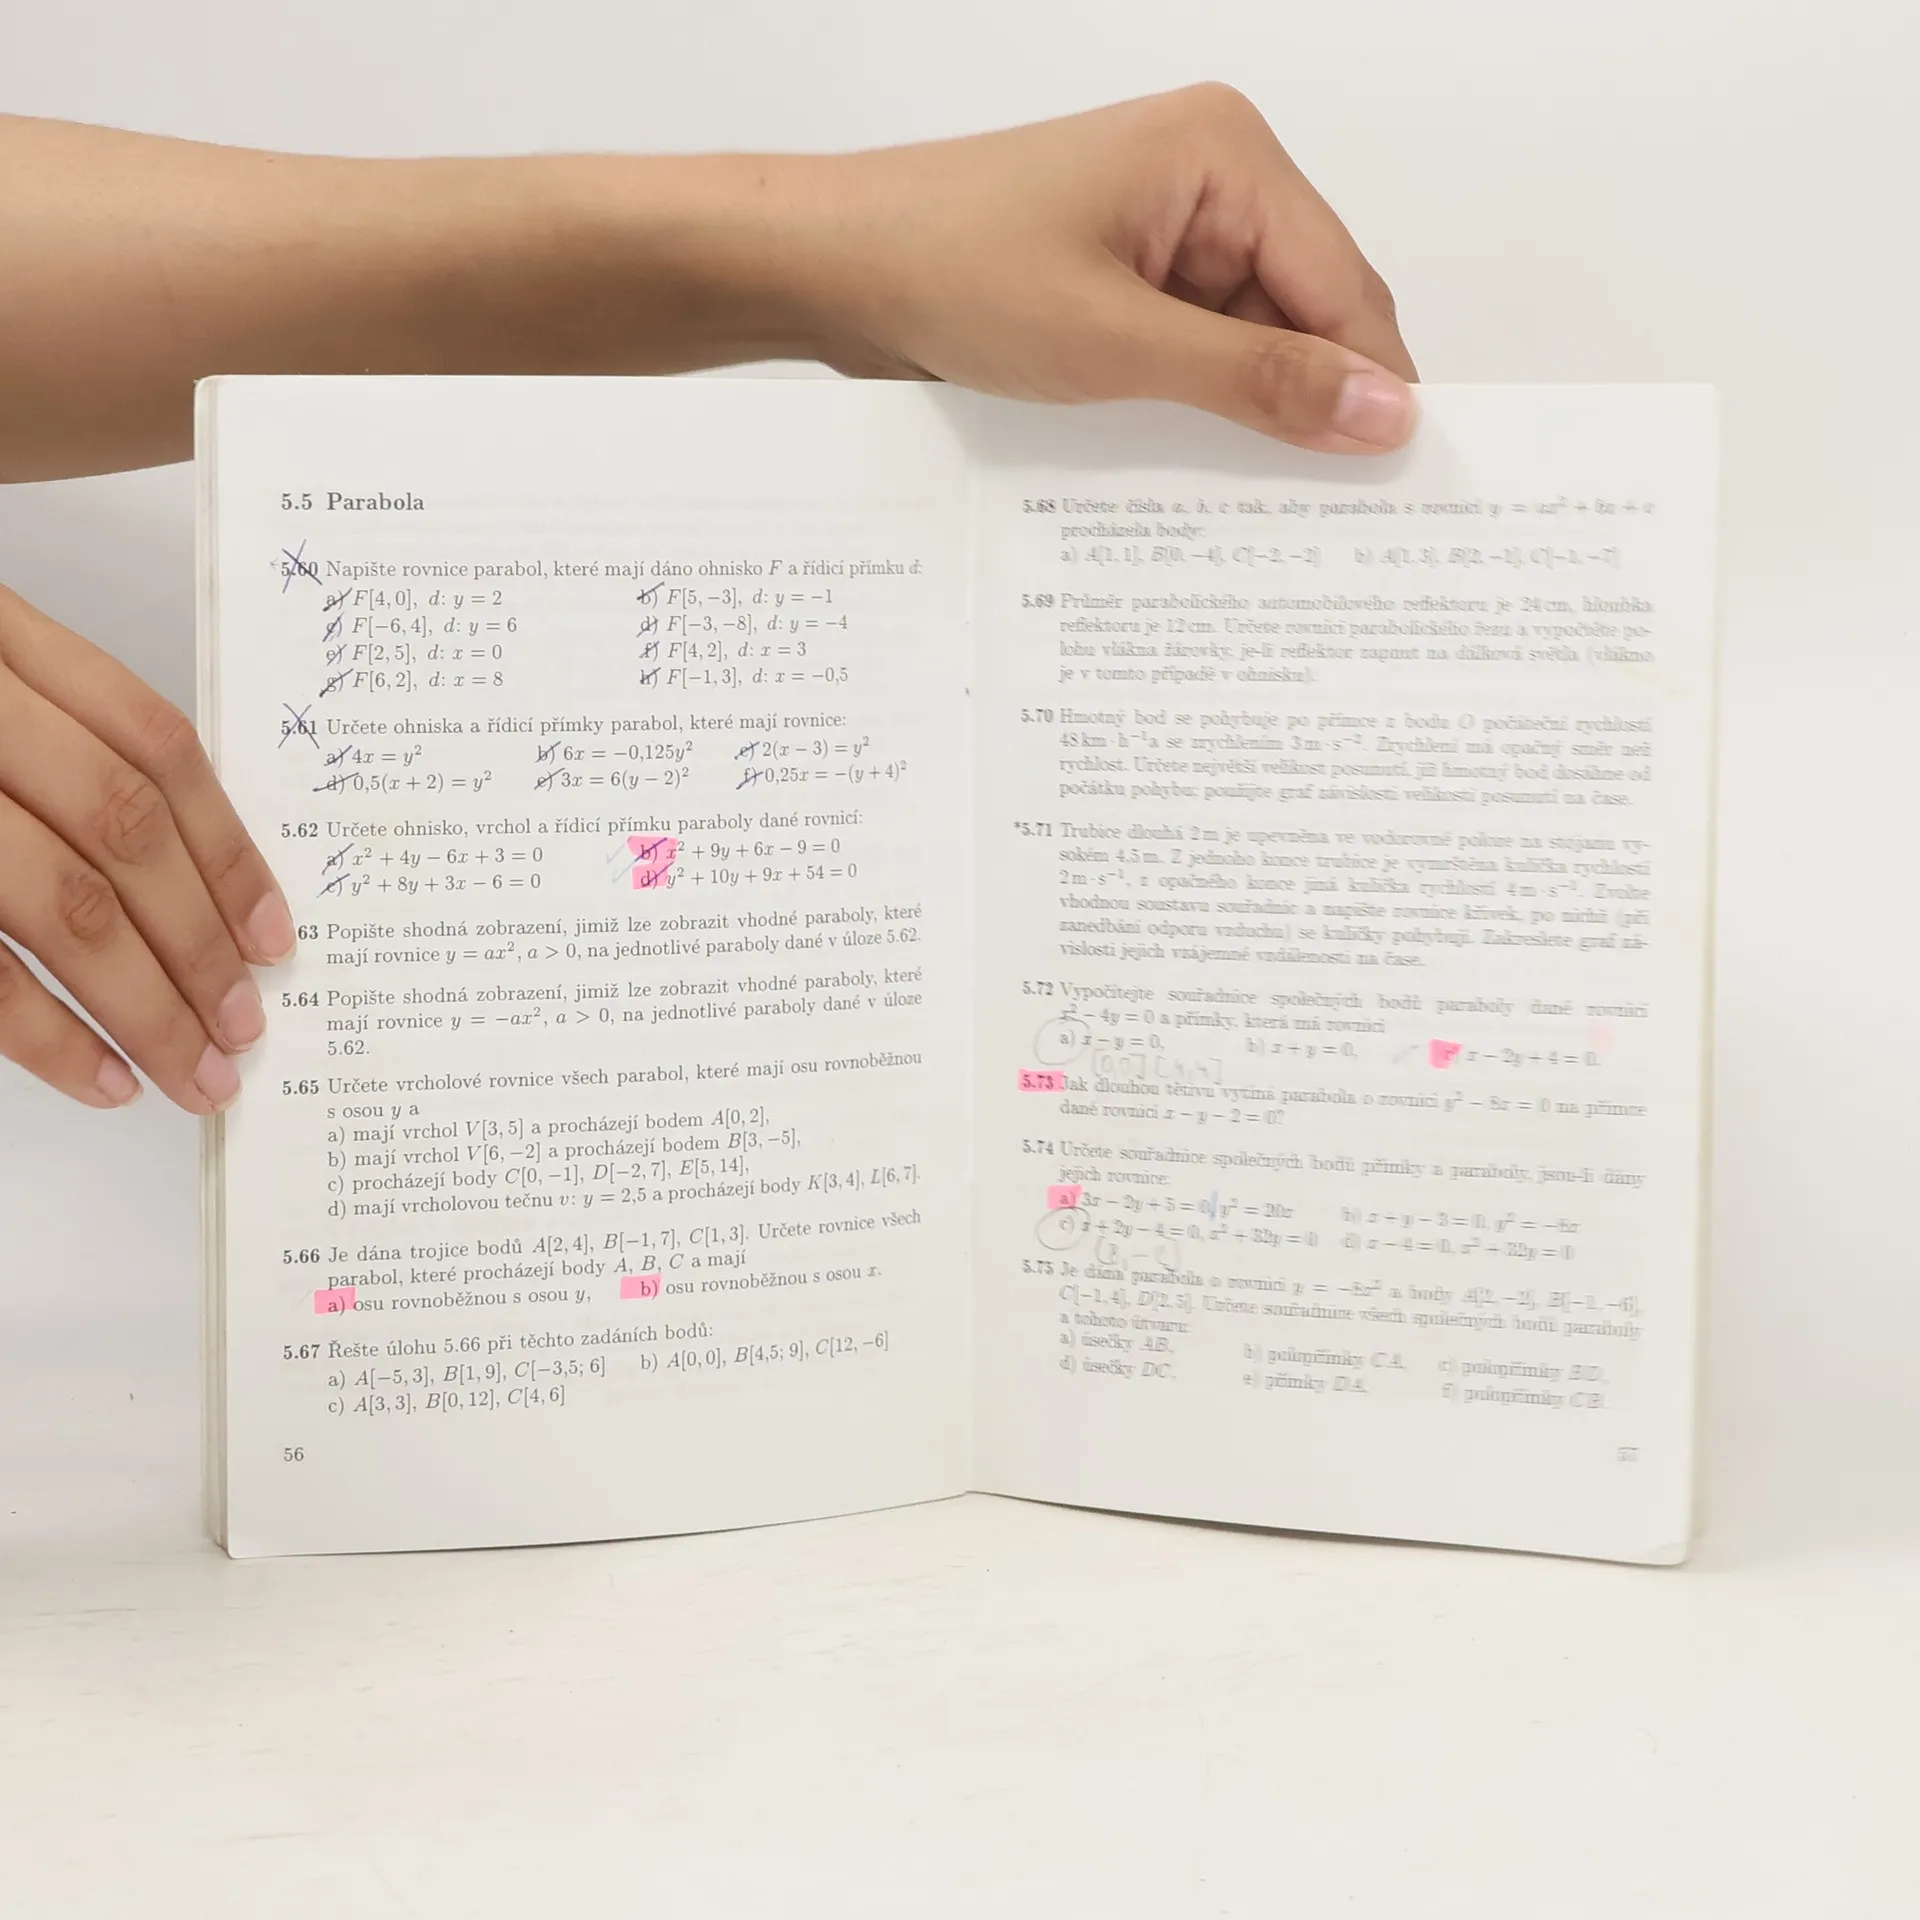 5.5 Parabola
5.60 Napište rovnice parabol, které mají dáno ohnisko F a řídicí přímku d:
a) F[4, 0], d: y = 2 b) F[5, −3], d: y = −1
c) F[−6, 4], d: y = 6 d) F[−3, −8], d: y = −4
e) F[2, 5], d: x = 0 f) F[4, 2], d: x = 3
g) F[6, 2], d: x = 8 h) F[−1, 3], d: x = −0,5
5.61 Určete ohniska a řídicí přímky parabol, které mají rovnice:
a) 4x = y² b) 6x = −0,125y² c) 2(x − 3) = y²
d) 0,5(x + 2) = y² e) 3x = 6(y − 2)² f) 0,25x = −(y + 4)²
5.62 Určete ohnisko, vrchol a řídicí přímku paraboly dané rovnicí:
a) x² + 4y − 6x + 3 = 0 b) x² + 9y + 6x − 9 = 0
c) y² + 8y + 3x − 6 = 0 d) y² + 10y + 9x + 54 = 0
63 Popište shodná zobrazení, jimiž lze zobrazit vhodné paraboly, které
mají rovnice y = ax², a > 0, na jednotlivé paraboly dané v úloze 5.62.
5.64 Popište shodná zobrazení, jimiž lze zobrazit vhodné paraboly, které
mají rovnice y = −ax², a > 0, na jednotlivé paraboly dané v úloze
5.62.
5.65 Určete vrcholové rovnice všech parabol, které mají osu rovnoběžnou
s osou y a
a) mají vrchol V[3, 5] a procházejí bodem A[0, 2],
b) mají vrchol V[6, −2] a procházejí bodem B[3, −5],
c) procházejí body C[0, −1], D[−2, 7], E[5, 14],
d) mají vrcholovou tečnu v: y = 2,5 a procházejí body K[3, 4], L[6, 7].
5.66 Je dána trojice bodů A[2, 4], B[−1, 7], C[1, 3]. Určete rovnice všech
parabol, které procházejí body A, B, C a mají
a) osu rovnoběžnou s osou y, b) osu rovnoběžnou s osou x.
5.67 Řešte úlohu 5.66 při těchto zadáních bodů:
a) A[−5, 3], B[1, 9], C[−3,5; 6] b) A[0, 0], B[4,5; 9], C[12, −6]
c) A[3, 3], B[0, 12], C[4, 6]
56
5.68 Určete čísla a, b, c tak, aby parabola s rovnicí y = ax² + bx + c
procházela body:
a) A[1, 1], B[0, −4], C[−2, −2] b) A[1, 3], B[2, −1], C[−1, −7]
5.69 Průměr parabolického automobilového reflektoru je 24 cm, hloubka
reflektoru je 12 cm. Určete rovnici parabolického řezu a vypočtěte po-
lohu vlákna žárovky, je-li reflektor zapnut na dálková světla (vlákno
je v tomto případě v ohnisku).
5.70 Hmotný bod se pohybuje po přímce z bodu O počáteční rychlostí
48 km · h⁻¹ a se zrychlením 3 m · s⁻². Zrychlení má opačný směr než
rychlost. Určete největší velikost posunutí, již hmotný bod dosáhne od
počátku pohybu; použijte graf závislosti velikosti posunutí na čase.
*5.71 Trubice dlouhá 2 m je upevněna ve vodorovné poloze na stojanu vy-
sokém 4,5 m. Z jednoho konce trubice je vymrštěna kulička rychlostí
2 m · s⁻¹, z opačného konce jiná kulička rychlostí 4 m · s⁻¹. Zvolte
vhodnou soustavu souřadnic a napište rovnice křivek, po nichž (při
zanedbání odporu vzduchu) se kuličky pohybují. Zakreslete graf zá-
vislosti jejich vzájemné vzdálenosti na čase.
5.72 Vypočítejte souřadnice společných bodů paraboly dané rovnicí
x² − 4y = 0 a přímky, která má rovnici
a) x − y = 0, b) x + y = 0, x − 2y + 4 = 0.
[0,0] [4,4]
5.73 Jak dlouhou tětivu vytíná parabola o rovnici y² − 8x = 0 na přímce
dané rovnicí x − y − 2 = 0?
5.74 Určete souřadnice společných bodů přímky a paraboly, jsou-li dány
jejich rovnice:
a) 3x − 2y + 5 = 0, y² = 20x b) x + y − 3 = 0, y² = −6x
c) x + 2y − 4 = 0, x² + 32y = 0 d) x − 4 = 0, x² + 32y = 0
5.75 Je dána parabola o rovnici y = −8x² a body A[2, −2], B[−1, −6],
C[−1, 4], D[2, 5]. Určete souřadnice všech společných bodů paraboly
a tohoto útvaru:
a) úsečky AB, b) polopřímky CA, c) polopřímky BD,
d) úsečky DC, e) přímky DA, f) polopřímky CB.
57